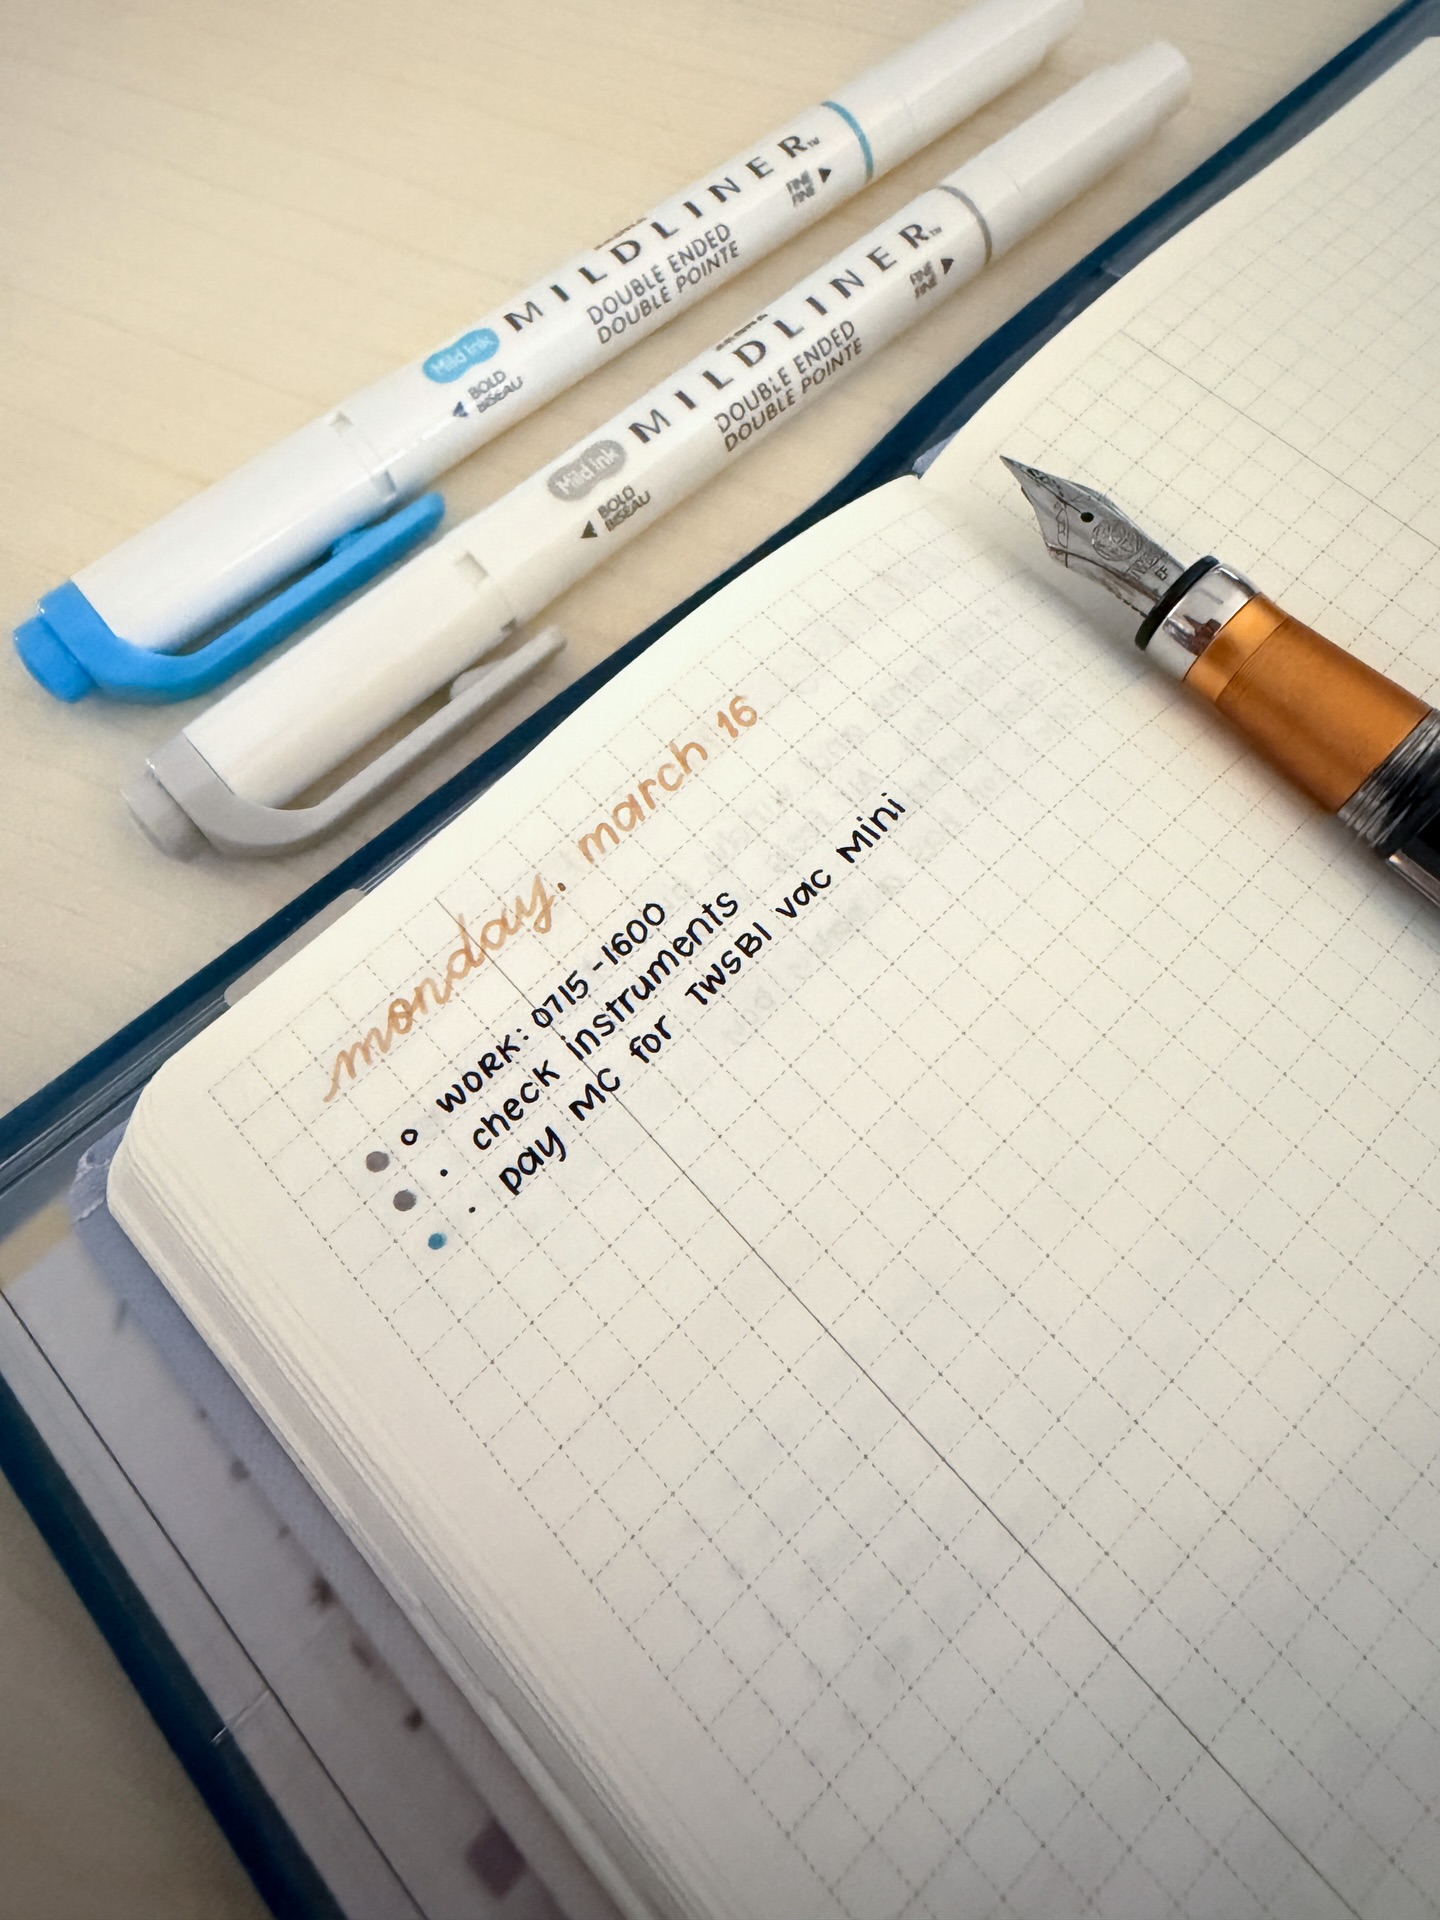 MILDLINER™
DOUBLE ENDED
DOUBLE POINTE
FINE
FINE
Mild ink
BOLD
BISEAU
ZEBRA
MILDLINER™
DOUBLE ENDED
DOUBLE POINTE
FINE
FINE
Mild ink
BOLD
BISEAU
EF
monday. march 16
WORK: 0715-1600
check instruments
pay MC for TWSBI vac Mini